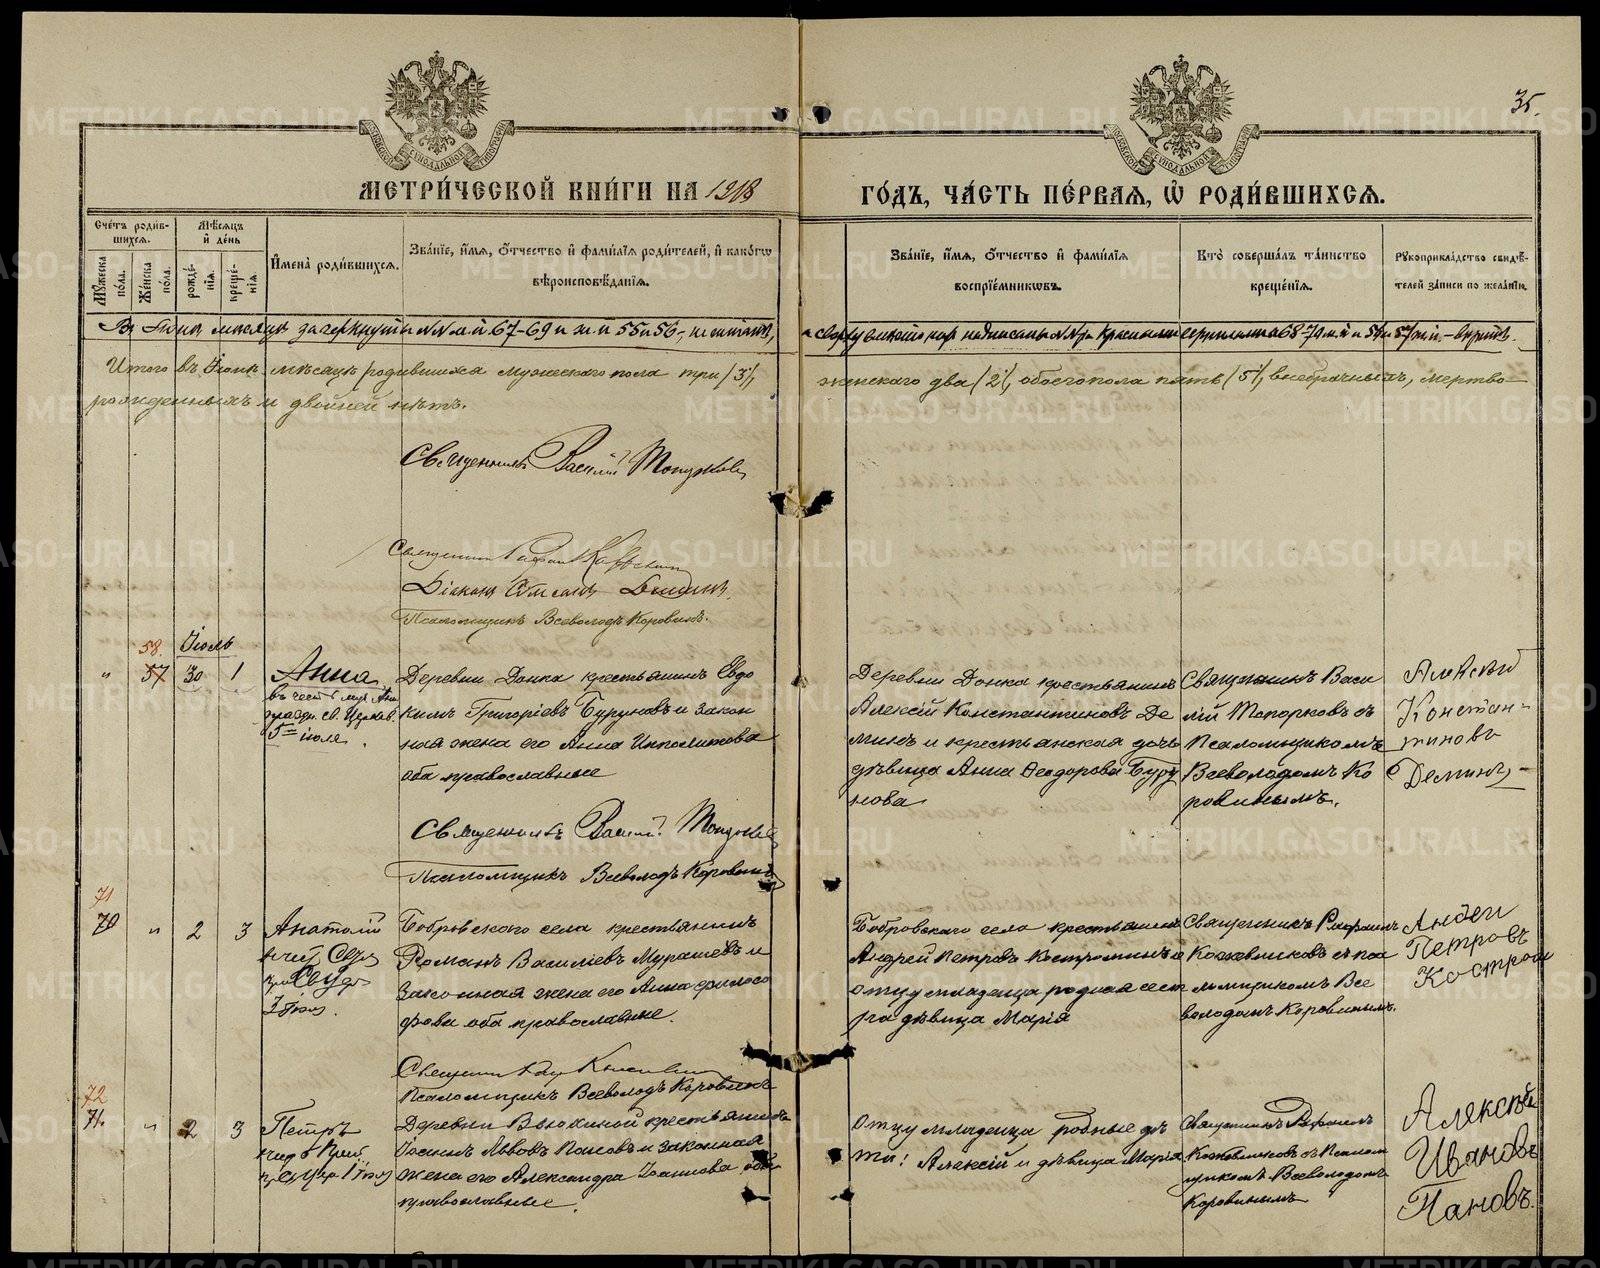 35.
МЕТРИ́ЧЕСКОЙ КНИ́ГИ НА 1918
ГО́ДЪ, ЧА́СТЬ ПЕ́РВАЯ, Ѿ РОДИ́ВШИХСѦ.
Сче́тъ роди́в-
шихсѧ.
Мѣ́сѧцъ
и҆ де́нь
Мꙋ́жеска по́ла.
Же́нска по́ла.
рожде́-
нїѧ.
креще́-
нїѧ.
И҆мена̀ роди́вшихсѧ.
Зва́нїе, и҆́мѧ, ѻ҆́тчество и҆ фами́лїѧ роди́телей, и҆ како́гѡ
вѣроисповѣ́данїѧ.
Зва́нїе, и҆́мѧ, ѻ҆́тчество и҆ фами́лїѧ
воспрїе́мникѡвъ.
Кто̀ соверша́лъ та́инство
креще́нїѧ.
Рꙋкоприкла́дство свидѣ́-
телей за́писи по жела́нїю.
Въ Іюнѣ мѣсяцѣ зачеркнуты №№ м.п 67-69 и ж.п 55 и 56,
68-70 м.п и 57 ж.п. - вѣрить.
Итого въ Іюнѣ мѣсяцѣ родившихся мужескаго пола три /3/,
женскаго два /2/, обоего пола пять /5/, внебрачныхъ, мертво
рожденныхъ и двойней нѣтъ.
Священникъ Василій Топорковъ
Священникъ
Діаконъ
Псаломщикъ Всеволодъ Коровинъ.
58. Іюль
" 57 30 1
Анна
5го іюля.
Деревни Донка крестьянинъ Евдо
кимъ Григоріевъ Буруновъ и закон
ная жена его Анна Ипполитова
оба православные
Деревни Донка крестьянинъ
Алексій Константиновъ Де
минъ и крестьянская дочь
дѣвица Анна Ѳеодорова Буру
нова
Священникъ Васи
лій Топорковъ съ
Псаломщикомъ
Всеволодомъ Ко
ровинымъ.
Алексѣй
Констан-
тиновъ
Деминъ
Священникъ Василій Топорковъ
Псаломщикъ Всеволодъ Коровинъ
71
70 " 2 3
Анатолій
Бобровскаго села крестьянинъ
Романъ Василіевъ Мурашевъ и
Законная жена его Анна Филосо
фова оба православные.
Бобровскаго села крестьянинъ
Андрей Петровъ Костроминъ и
отцу младенца родная сест
ра дѣвица Марія
Священникъ Рафаилъ
Кожевниковъ съ пса
ломщикомъ Все
володомъ Коровинымъ.
Андрей
Петровъ
Костромин
Священникъ
Псаломщикъ Всеволодъ Коровинъ
72
71. " 2 3
Петръ
Деревни Вьюхиной крестьянинъ
Іоаннъ Львовъ Пановъ и законная
жена его Александра Іоаннова, оба
православные.
Отцу младенца родные дѣ
ти: Алексій и дѣвица Марія
Священникъ Рафаилъ
Кожевниковъ съ Псалом
щикомъ Всеволодомъ
Коровинымъ
Алексѣй
Ивановъ
Пановъ.
METRIKI.GASO-URAL.RU